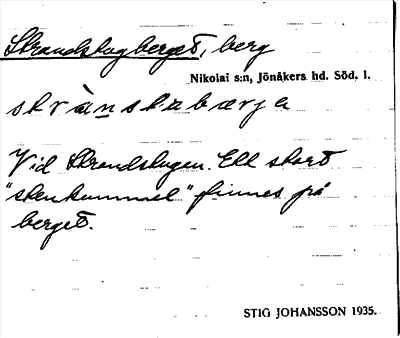 Strandstugberget, berg
Nikolai s:n, Jönåkers hd. Söd. l.
strànstabærje
Vid Strandstugan. Ett stort
"stenkummel" finnes på
berget.
STIG JOHANSSON 1935.